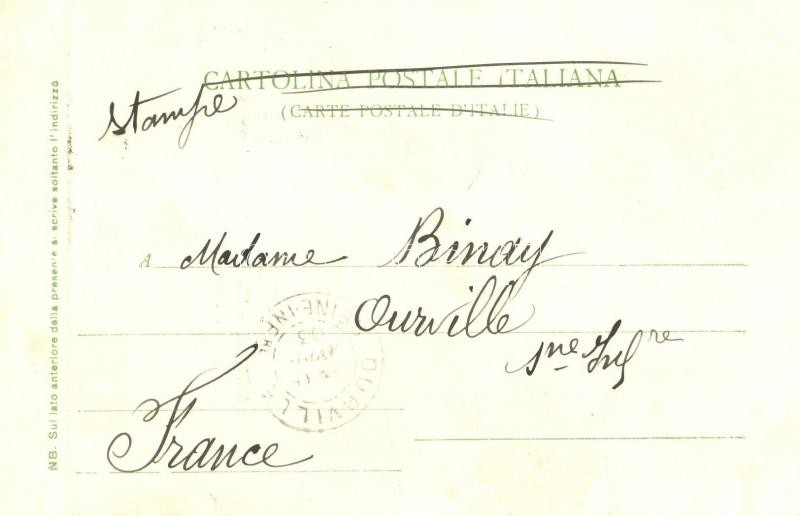 CARTOLINA POSTALE ITALIANA
(CARTE POSTALE D'ITALIE)
Stampe
A Madame Binay
Ourville
Sne Infre
France
NB. Sul lato anteriore della presente si scrive soltanto l'indirizzo
OURVILLE
SEINE-INFRE
03